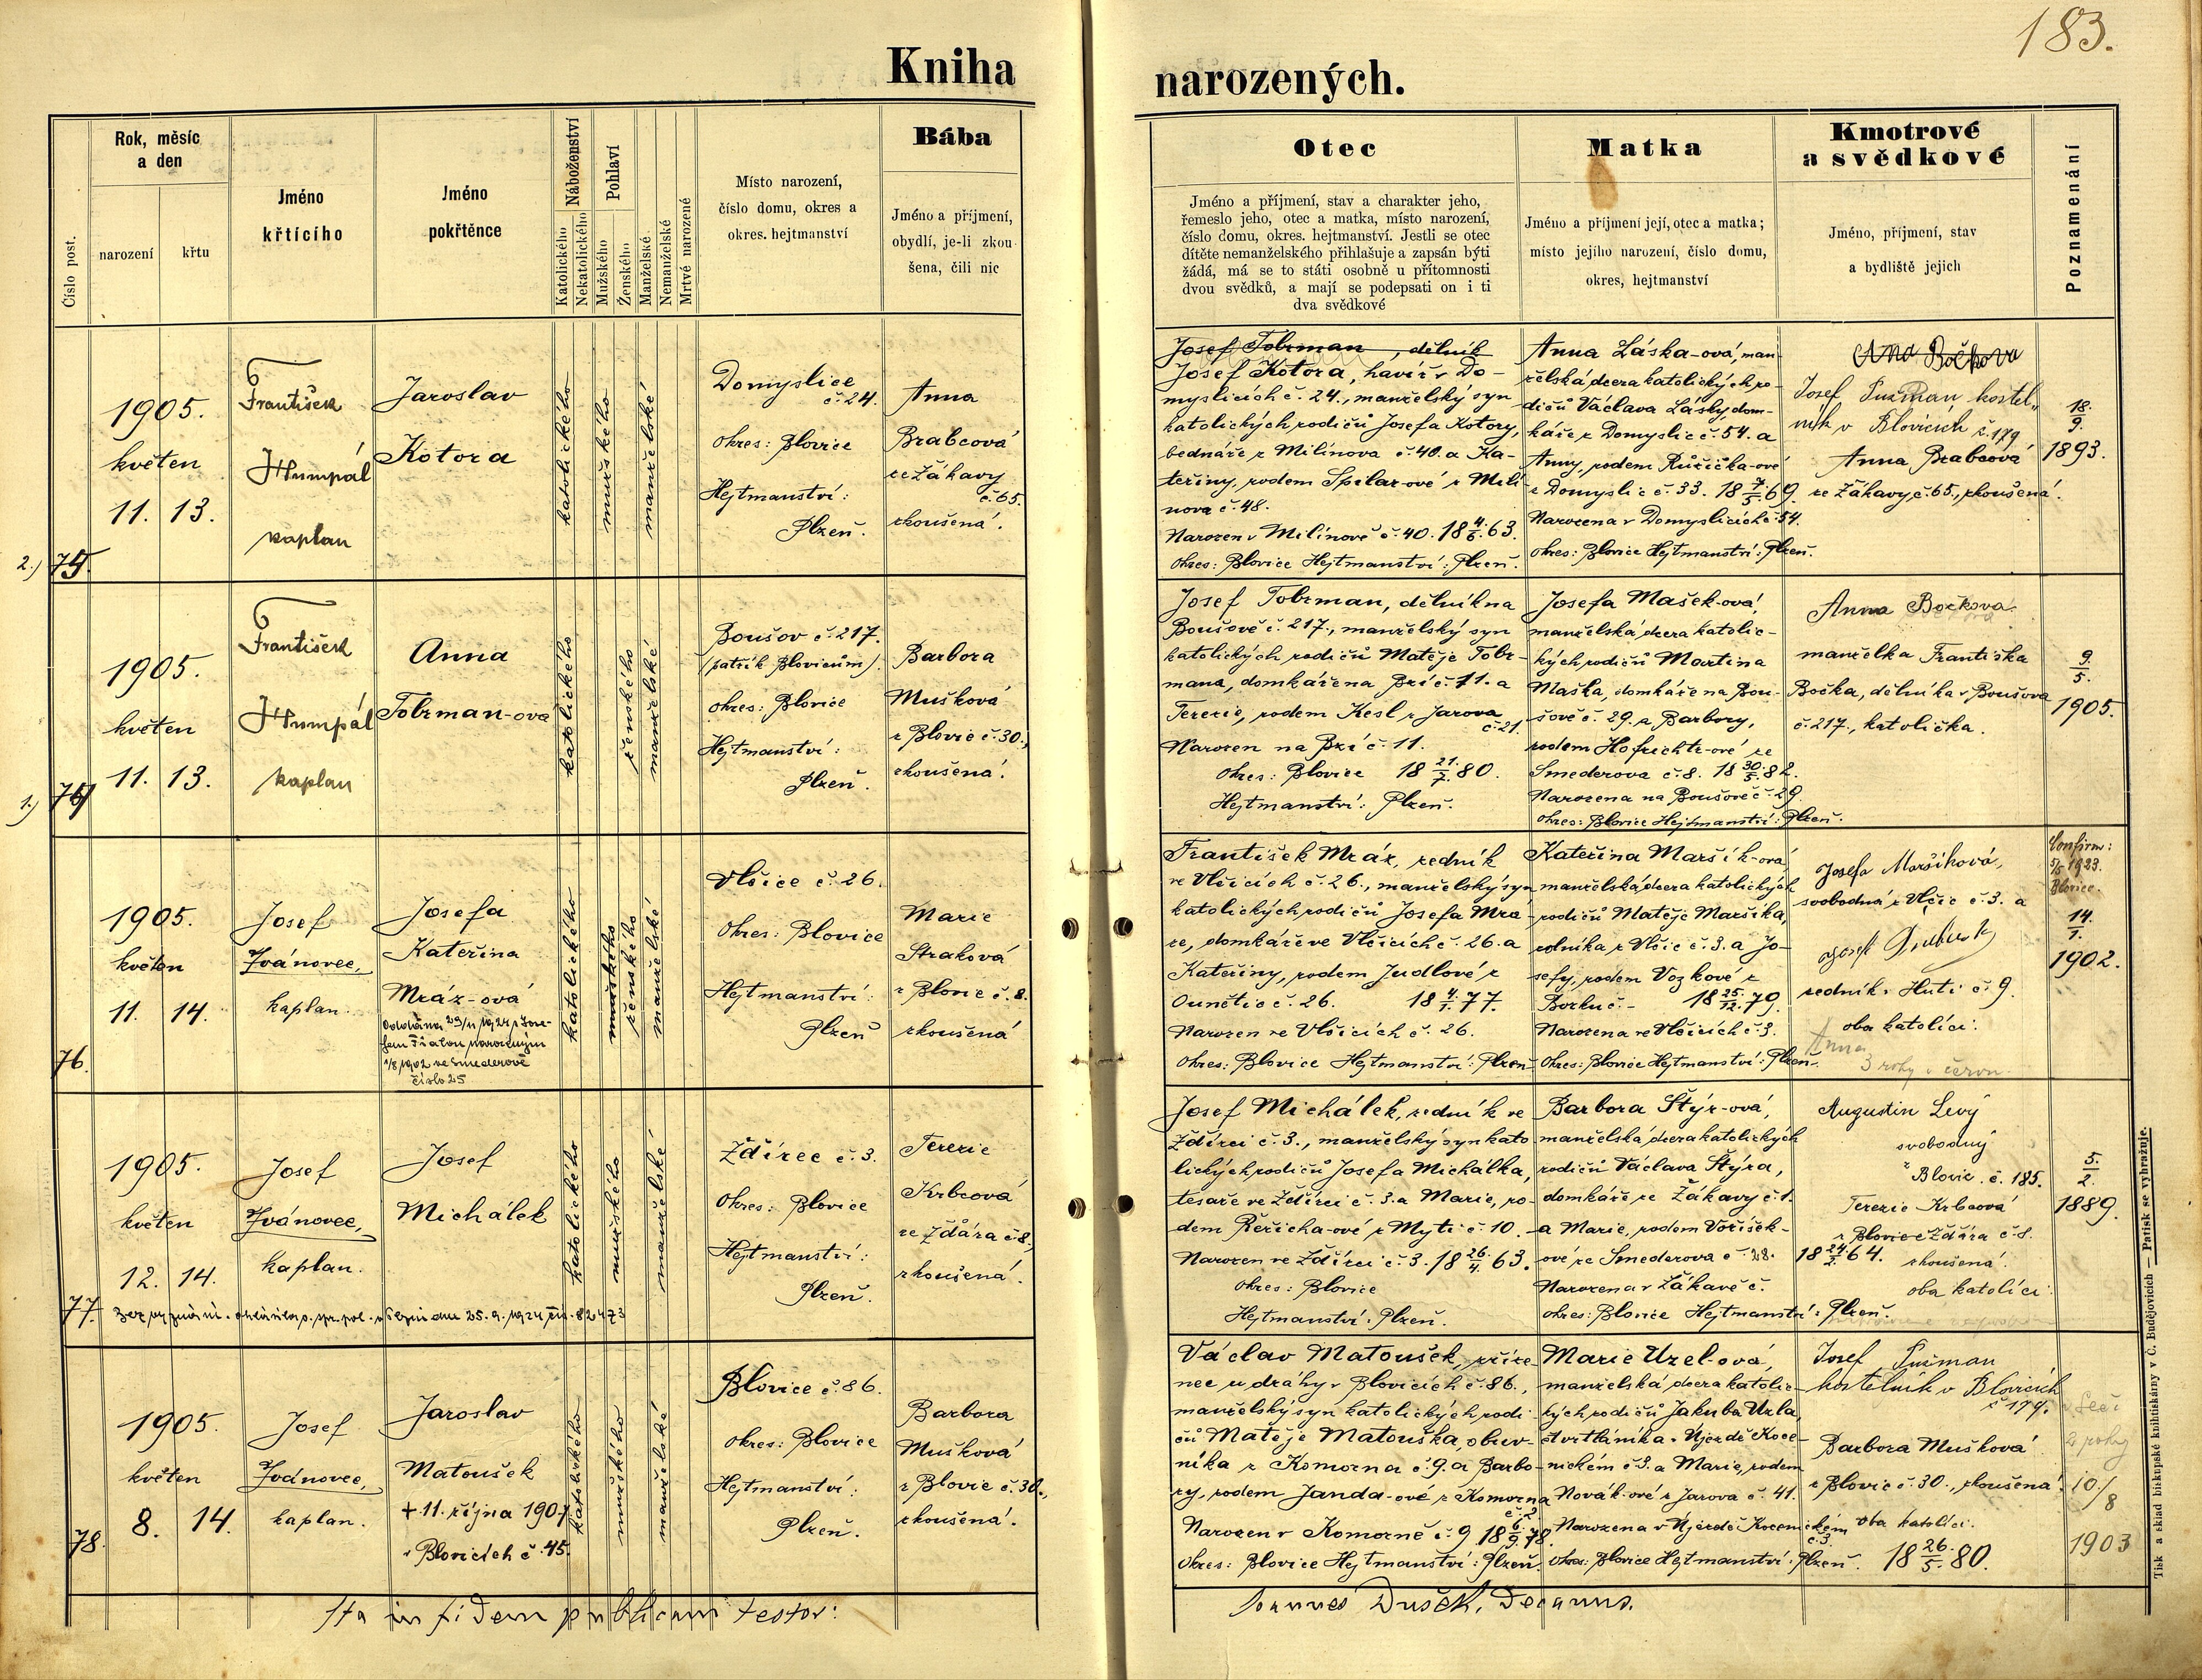 183.
Kniha narozených.
Číslo post.
Rok, měsíc
a den
narození
křtu
Jméno
křtícího
Jméno
pokřtěnce
Náboženství
Katolického
Nekatolického
Pohlaví
Mužského
Ženského
Manželské
Nemanželské
Mrtvé narozené
Místo narození,
číslo domu, okres a
okres. hejtmanství
Bába
Jméno a příjmení,
obydlí, je-li zkou
šena, čili nic
Otec
Jméno a příjmení, stav a charakter jeho,
řemeslo jeho, otec a matka, místo narození,
číslo domu, okres. hejtmanství. Jestli se otec
dítěte nemanželského přihlašuje a zapsán býti
žádá, má se to státi osobně u přítomnosti
dvou svědků, a mají se podepsati on i ti
dva svědkové
Matka
Jméno a příjmení její, otec a matka;
místo jejího narození, číslo domu,
okres, hejtmanství
Kmotrové
a svědkové
Jméno, příjmení, stav
a bydliště jejich
Poznamenání
2.) 75.
1905.
květen
11. 13.
František
Humpál
kaplan
Jaroslav
Kotora
katolického
mužského
manželské
Domyslice
č. 24.
okres: Blovice
Hejtmanství:
Plzeň.
Anna
Brabcová
ze Žákavy
č. 65.
zkoušená.
Josef Tobrman, dělník
Josef Kotora, havíř v Do-
myslicích č. 24., manželský syn
katolických rodičů Josefa Kotory,
bednáře z Milínova č. 40. a Ka-
teřiny, rodem Špilar-ové z Milí
nova č. 48.
Narozen v Milínově č. 40. 18 4/6. 63.
okres: Blovice Hejtmanství: Plzeň.
Anna Láska-ová, man
želská dcera katolických ro-
dičů Václava Lásky, dom-
káře z Domyslic č. 54. a
Anny, rodem Růžička-ové
z Domyslic č. 33. 18 7/5. 69.
Narozena v Domyslicích č. 54.
okres: Blovice Hejtmanství: Plzeň.
Anna Bočkova
Josef Pužman kostel„
ník v Blovicích č. 179
Anna Brabcová
ze Žákavy, č. 65., zkoušená.
18./9.
1893.
1.) 74
1905.
květen
11. 13.
František
Humpál
kaplan
Anna
Tobrman-ova
katolického
ženského
manželské
Boušov č. 217.
(patřík Blovicům).
okres: Blovice
Hejtmanství:
Plzeň.
Barbora
Mušková
z Blovic č. 30.,
zkoušená.
Josef Tobrman, dělník na
Boušově č. 217., manželský syn
katolických rodičů Matěje Tobr-
mana, domkáře na Bzí č. 11. a
Terezie, rodem Kesl z Jarova
č. 21.
Narozen na Bzí č. 11.
okres: Blovice 18 21./7. 80.
Hejtmanství: Plzeň.
Josefa Mašek-ová,
manželská dcera katolic-
kých rodičů Martina
Maška, domkáře na Bou-
šově č. 29. a Barbory,
rodem Hofrichtr-ové ze
Smederova č. 8. 18 30./5. 82.
Narozena na Boušově č. 29.
okres: Blovice Hejtmanství: Plzeň.
Anna Bočkova
manželka Františka
Bočka, dělníka z Boušova
č. 217., katolička.
9./5.
1905.
76.
1905.
květen
11. 14.
Josef
Jvánovec,
kaplan.
Josefa
Kateřina
Mráz-ová
Oddána 29/11 1924 s Jose-
fem Fialou narozeným
1/8 1902 ve Smederově
číslo 25
katolického
mužského
ženského
manželské
Vlčice č. 26.
okres: Blovice
Hejtmanství:
Plzeň
Marie
Straková
z Blovic č. 8.
zkoušená
František Mráz, zedník
ve Vlčicích č. 26., manželský syn
katolických rodičů Josefa Mrá-
ze, domkáře ve Vlčicích č. 26. a
Kateřiny, rodem Judlové z
Ounětic č. 26. 18 4/1. 77.
Narozen ve Vlčicích č. 26.
okres: Blovice Hejtmanství: Plzeň
Kateřina Maršík-ová
manželská dcera katolických
rodičů Matěje Maršíka,
rolníka z Vlčic č. 3. a Jo-
sefy, rodem Vozkové z
Borku č. - 18 25./12. 79.
Narozena ve Vlčicích č. 3.
okres: Blovice Hejtmanství: Plzeň.
Josefa Maršíková,
svobodná z Vlčic č. 3. a
Josef
zedník z Hutí č. 9.
oba katolíci.
Anna
3 roky v červn.
Confirm:
5/5 1923.
Blovice.
14./1.
1902.
77.
1905.
květen
12. 14.
Josef
Jvánovec,
kaplan.
Josef
Michálek
katolického
mužského
manželské
Ždírec č. 3.
okres: Blovice
Hejtmanství:
Plzeň.
Terezie
Krbcová
ze Ždára č. 8.,
zkoušená.
Bez vyznání. ohlásil o. spr. pol. v Plzni dne 25. 9. 1924 čís. 82473
Josef Michálek, zedník ve
Ždírci č. 3., manželský syn kato
lických rodičů Josefa Michálka,
tesaře ve Ždírci č. 3. a Marie, ro-
dem Řeřicha-ové z Mytí č. 10.
Narozen ve Ždírci č. 3. 18 26./4. 63.
okres: Blovice
Hejtmanství: Plzeň.
Barbora Štýr-ová,
manželská dcera katolických
rodičů Václava Štýra,
domkáře ze Žákavy č. 1.
a Marie, rodem Voříšek-
ové ze Smederova č. 28. 18 24./2. 64.
Narozena v Žákavě č.
okres: Blovice Hejtmanství: Plzeň.
Augustin Levý
svobodný
z Blovic. č. 185.
Terezie Krbcová
z Blovic Ždára č. 8.
zkoušená.
oba katolíci.
5./2.
1889.
78.
1905.
květen
8. 14.
Josef
Jvánovec,
kaplan.
Jaroslav
Matoušek
+ 11. října 1907
v Blovicích č. 45.
katolického
mužského
manželské
Blovice č. 86.
okres: Blovice
Hejtmanství:
Plzeň.
Barbora
Mušková
z Blovic č. 30.,
zkoušená.
Václav Matoušek, zříze-
nec u dráhy v Blovicích č. 86.,
manželský syn katolických rodi
čů Matěje Matouška, obuv-
níka z Komorna č. 9. a Barbo-
ry, rodem Janda-ové z Komorna
č. 2
Narozen v Komorně č. 9 18 6./9. 78.
okres: Blovice Hejtmanství: Plzeň.
Marie Uzel-ová,
manželská dcera katolic-
kých rodičů Jakuba Uzla,
čtvrtláníka v Újezdě Koce-
nickém č. 3. a Marie, rodem
Novák-ové z Jarova č. 41.
Narozena v Újezdě Kocenickém
č. 3.
okres: Blovice Hejtmanství: Plzeň. 18 26./5. 80.
Josef Pužman
kostelník v Blovicích
č. 179.
Barbora Mušková
z Blovic č. 30., zkoušená.
oba katolíci.
2 roky
10./8
1903
Ita in fidem publicam testor:
Joannes Dušek, Decanus.
Tisk a sklad biskupské knihtiskárny v Č. Budějovicích — Patisk se vyhražuje.